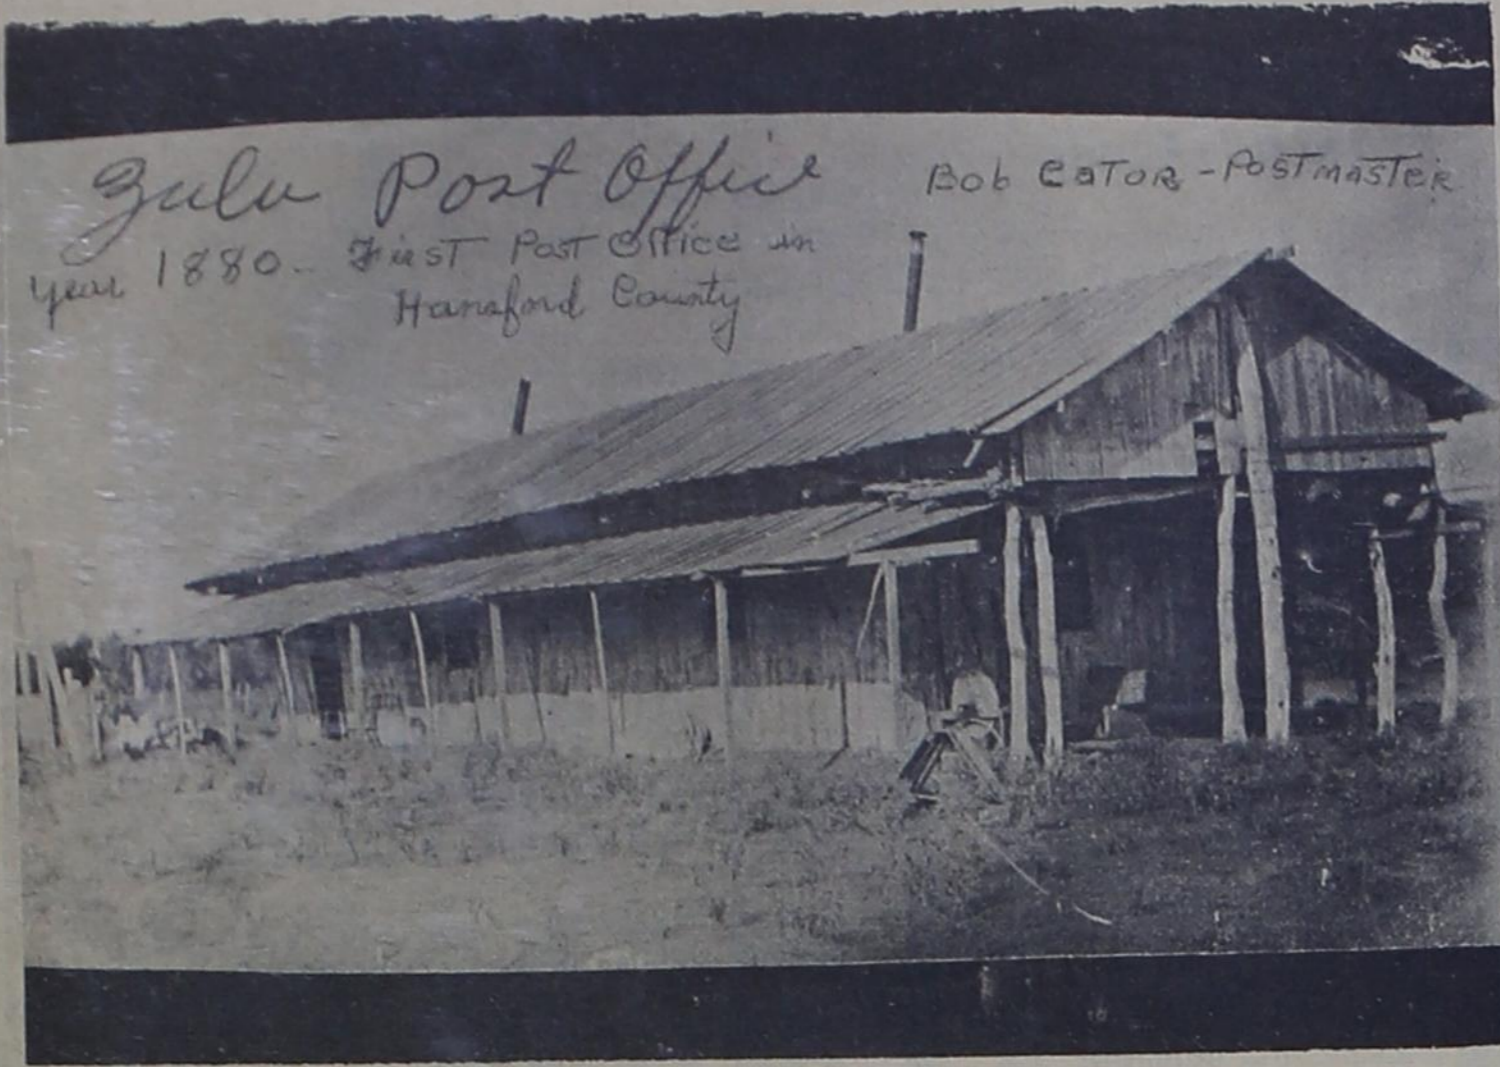 Zulu Post Office
Bob Cator - Postmaster
Year 1880 - First Post Office in
Hansford County